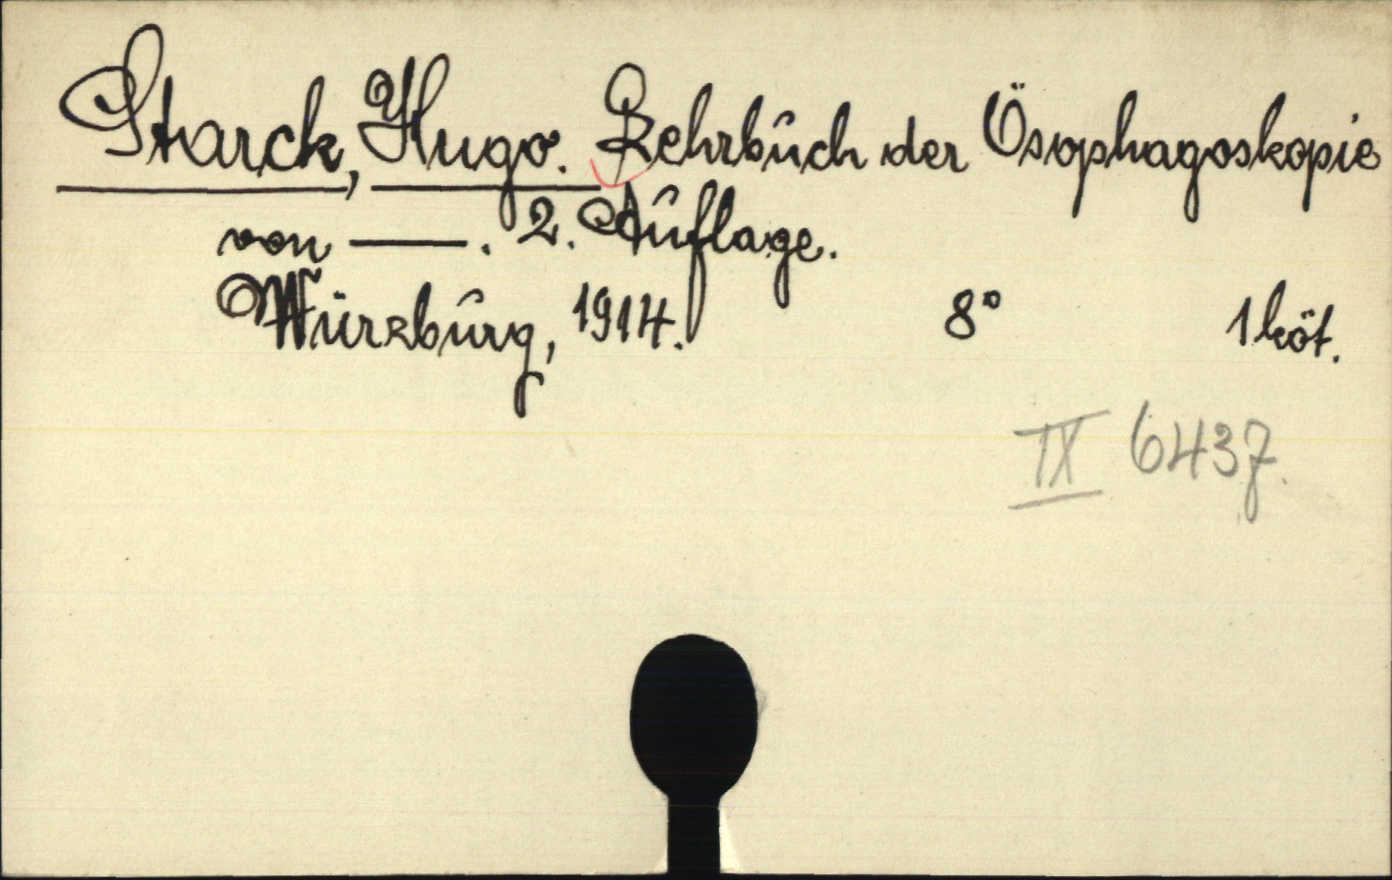 Starck, Hugo. Lehrbuch der Ösophagoskopie
von —— . 2. Auflage.
Würzburg, 1914. 8° 1 köt.
IX 6437.